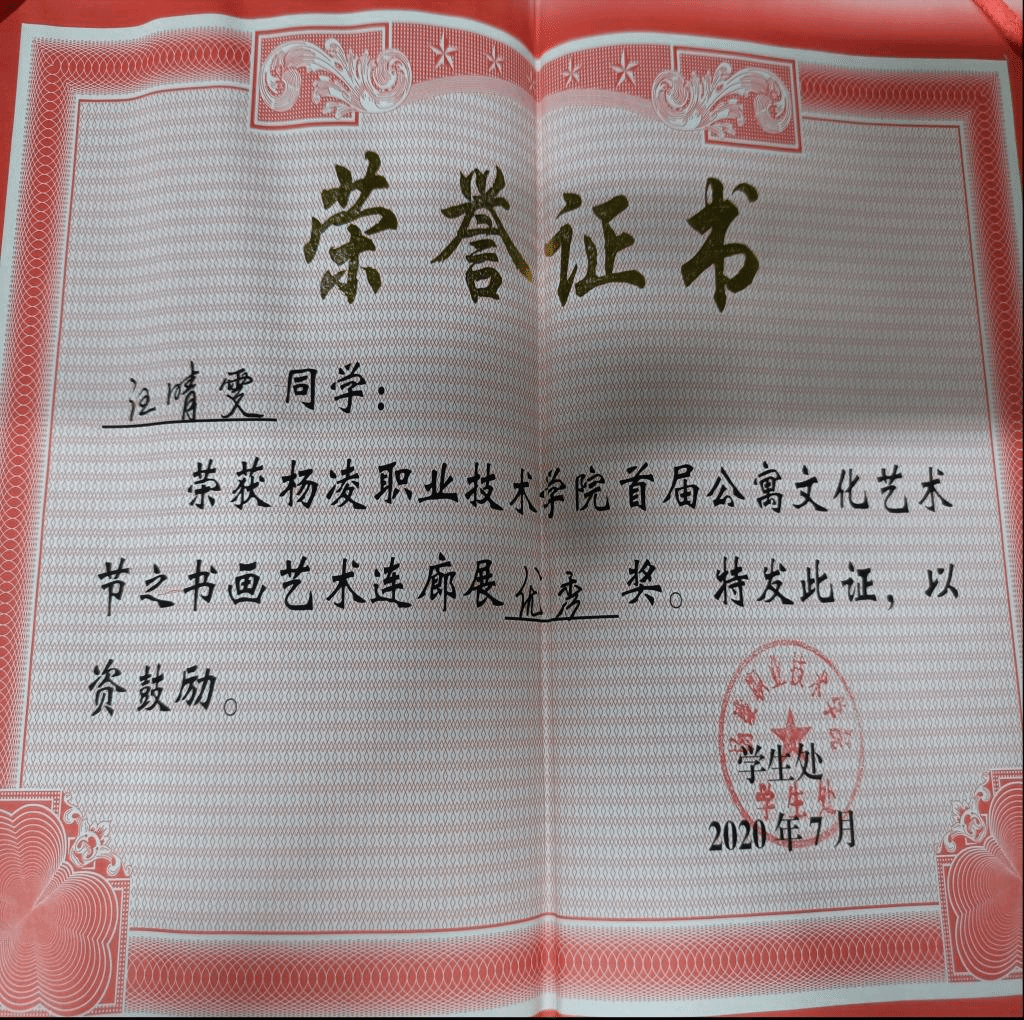 荣誉证书
汪晴雯同学：
荣获杨凌职业技术学院首届公寓文化艺术
节之书画艺术连廊展优秀奖。特发此证，以
资鼓励。
杨凌职业技术学院
学生处
学生处
2020年7月